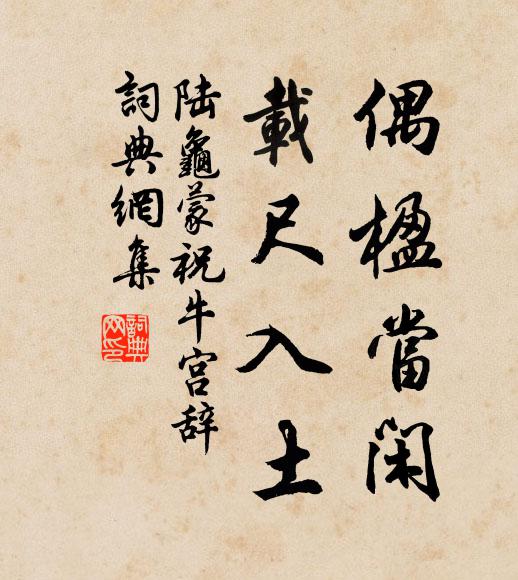 偶楹當閑
載尺入土
陆龜蒙祝牛宫辞
詞典網集
詞典網印